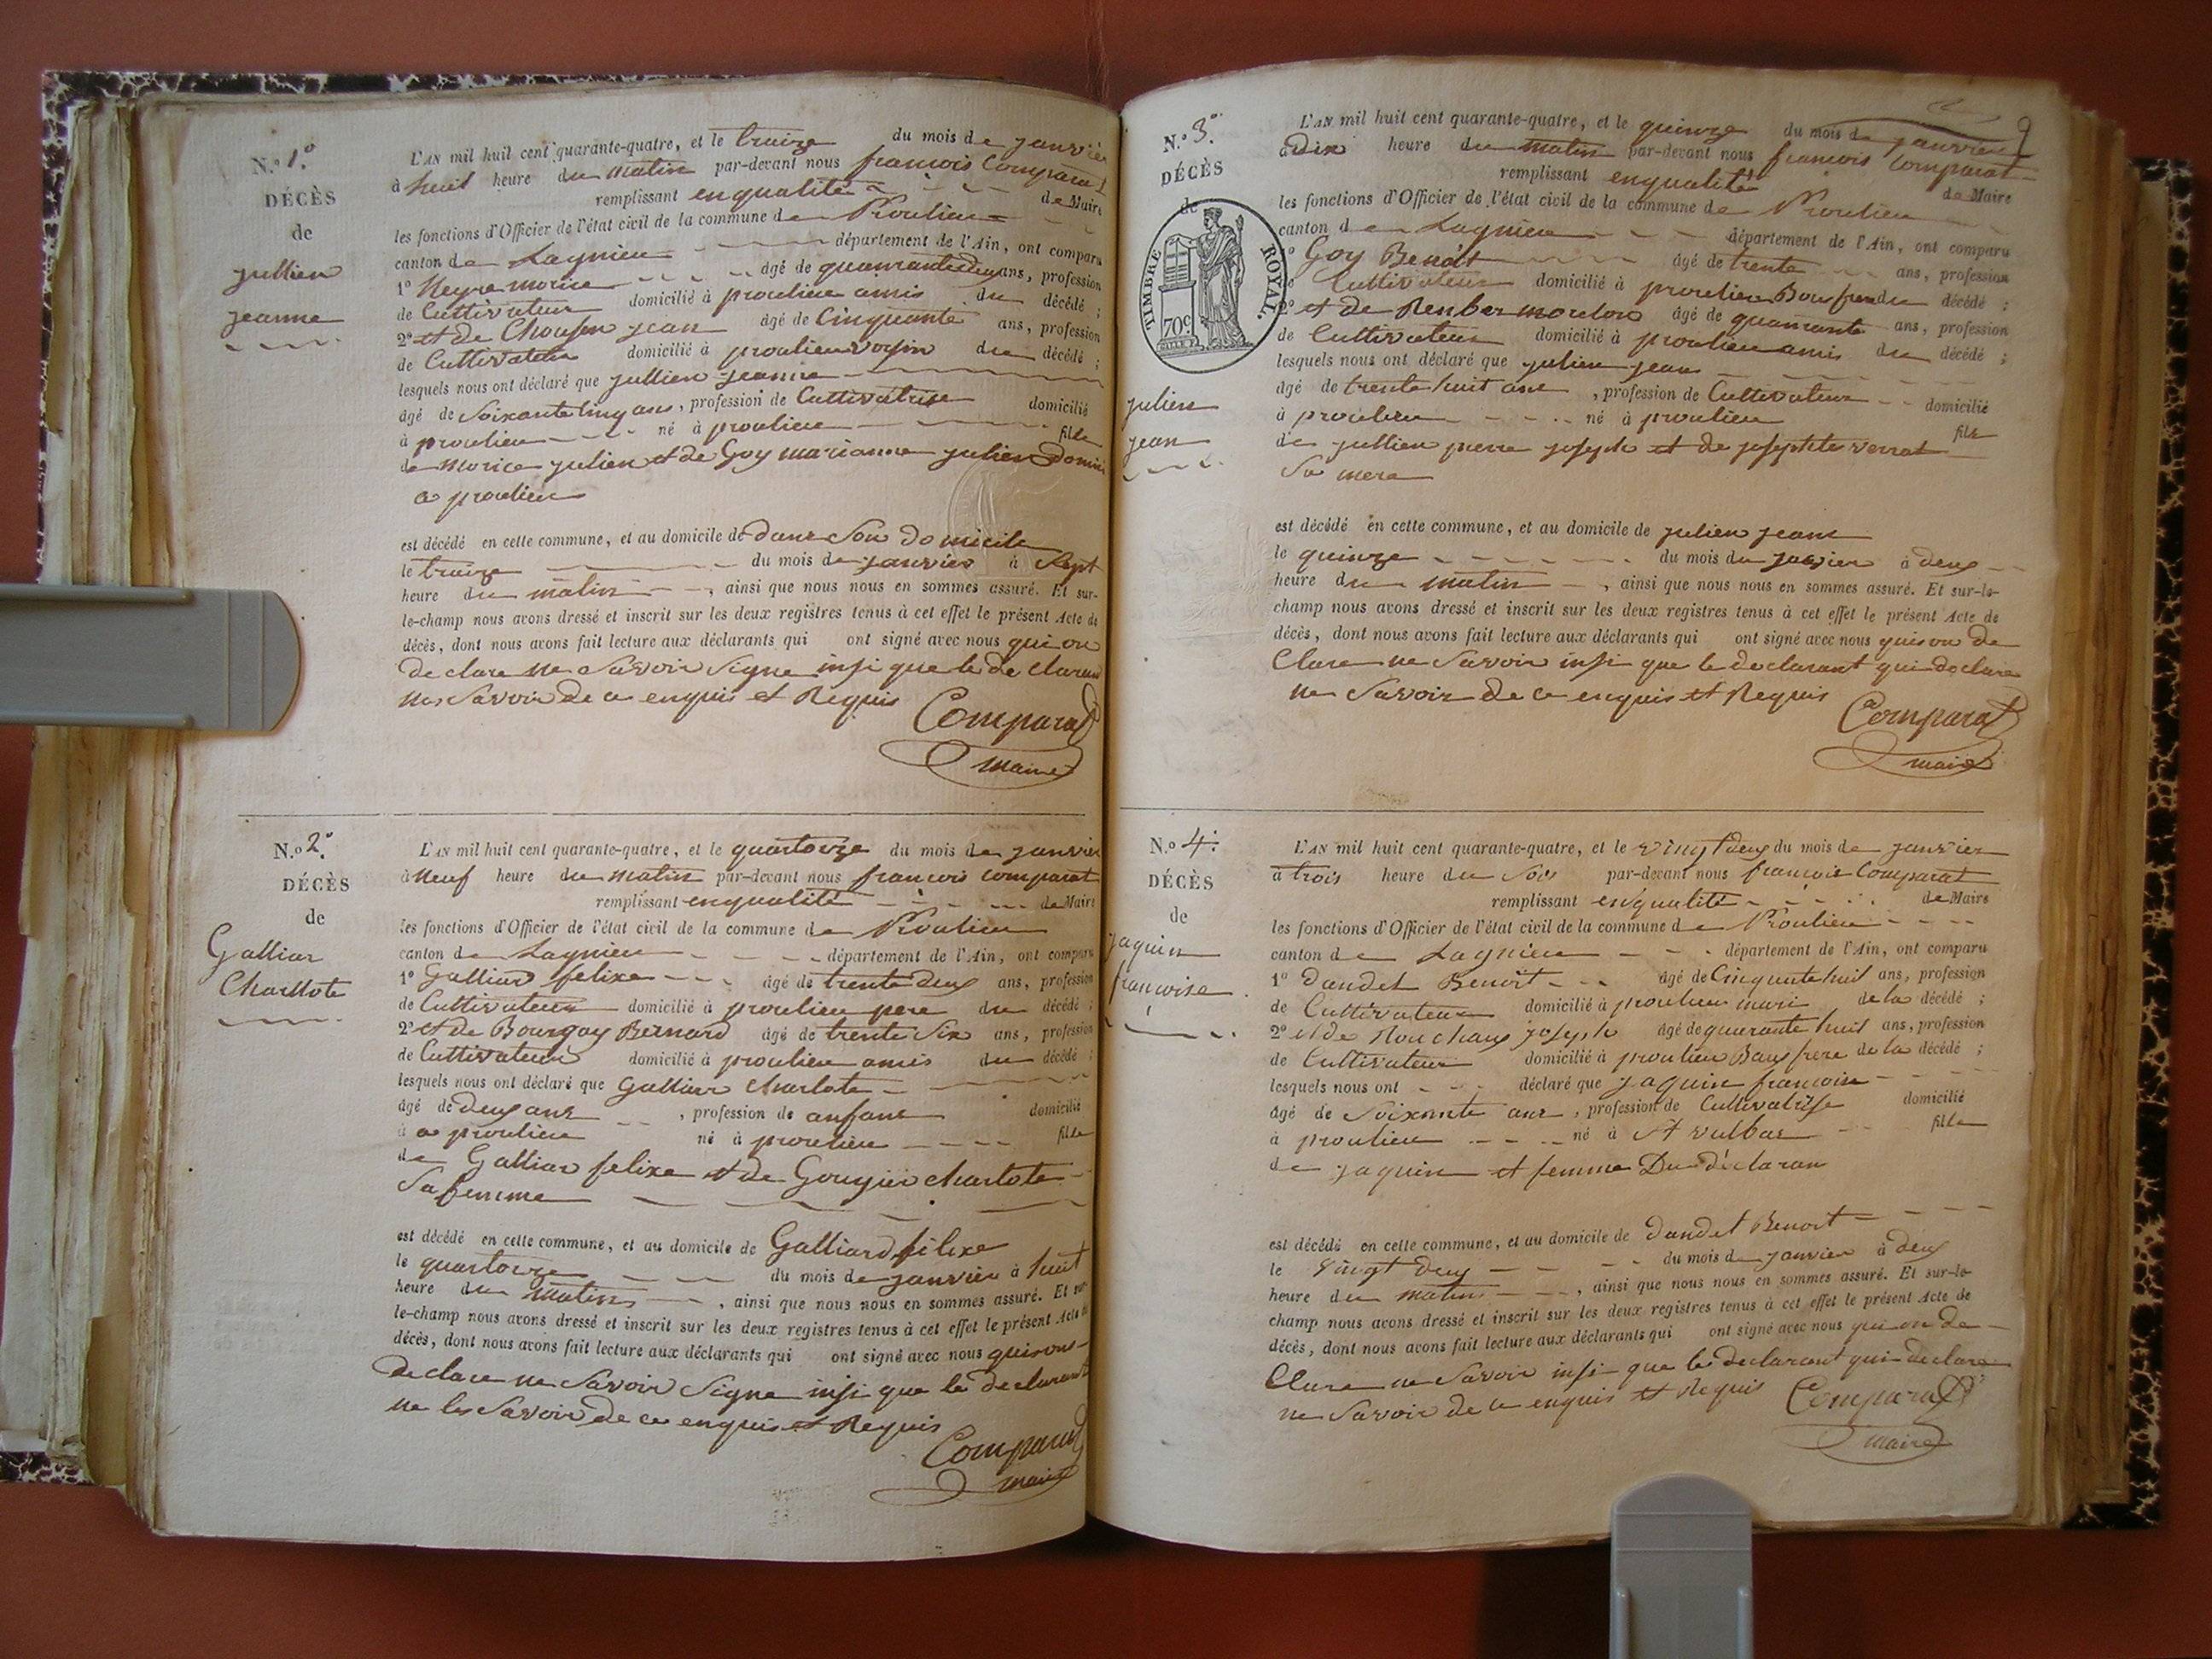 N.o 1.o
DÉCÈS
de
jullien
jeanne
L'AN mil huit cent quarante-quatre, et le traize du mois de janvier
à huit heure du matin par-devant nous francois Comparat
remplissant enqualité de Maire
les fonctions d'Officier de l'état civil de la commune de Proulieu
canton de Lagnieu département de l'Ain, ont comparu
1o Neyre morice âgé de quarantedeux ans, profession
de Cultivateur domicilié à proulieu amis du décédé ;
2o et de jean âgé de Cinquante ans, profession
de Cultivateur domicilié à proulieu voysin du décédé ;
lesquels nous ont déclaré que jullien jeanne
âgé de Soixantecinq ans, profession de Cultivatrise domicilié
à proulieu né à proulieu fille
de morice julien et de Goy marianne julien
a proulieu
est décédé en cette commune, et au domicile de dans Son domicile
le traize du mois de janvier à Sept
heure du matin , ainsi que nous nous en sommes assuré. Et sur-
le-champ nous avons dressé et inscrit sur les deux registres tenus à cet effet le présent Acte de
décès, dont nous avons fait lecture aux déclarants qui ont signé avec nous qui on
declare ne Savoir Signe insi que le de claran
ne Savoir de ce enquis et Requis
Comparat
maire
N.o 2.o
DÉCÈS
de
Galliar
Charllote
L'AN mil huit cent quarante-quatre, et le quartorze du mois de janvier
à Neuf heure du matin par-devant nous francois comparat
remplissant enqualité de Maire
les fonctions d'Officier de l'état civil de la commune de Proulieu
canton de Lagnieu département de l'Ain, ont comparu
1o Galliard felixe âgé de trente deux ans, profession
de Cultivateur domicilié à proulieu pere du décédé ;
2o et de Bourgay Bernard âgé de trente Six ans, profession
de Cultivateur domicilié à proulieu amis du décédé ;
lesquels nous ont déclaré que Galliar Charlote
âgé de deux ans , profession de anfans domicilié
à a proulieu né à proulieu fille
de Galliar felixe et de Charlote
Sa femme
est décédé en cette commune, et au domicile de Galliard félixe
le quartorze du mois de janvier à huit
heure du matin , ainsi que nous nous en sommes assuré. Et sur-
le-champ nous avons dressé et inscrit sur les deux registres tenus à cet effet le présent Acte de
décès, dont nous avons fait lecture aux déclarants qui ont signé avec nous
declare ne Savoir Signe insi que le declarant
ne les Savoir de ce enquis et Requis
Comparat
maire
9
N.o 3.o
DÉCÈS
de
TIMBRE ROYAL.
70c
julien
jean
L'AN mil huit cent quarante-quatre, et le quinze du mois de janvier
à dix heure du matin par-devant nous francois Comparat
remplissant enqualité de Maire
les fonctions d'Officier de l'état civil de la commune de Proulieu
canton de Lagnieu département de l'Ain, ont comparu
1o Goy Benoit âgé de trente ans, profession
de Cultivateur domicilié à proulieu du décédé ;
2o et de âgé de quarante ans, profession
de Cultivateur domicilié à proulieu amis du décédé ;
lesquels nous ont déclaré que julien jean
âgé de trente huit ans , profession de Cultivateur domicilié
à proulieu né à proulieu fils
de jullien pierre joseph et de josephte verrat
Sa mere
est décédé en cette commune, et au domicile de julien jean
le quinze du mois de janvier à deux
heure du matin , ainsi que nous nous en sommes assuré. Et sur-le-
champ nous avons dressé et inscrit sur les deux registres tenus à cet effet le présent Acte de
décès, dont nous avons fait lecture aux déclarants qui ont signé avec nous qui on de
Clare ne Savoir insi que le declarant qui declare
ne Savoir de ce enquis et Requis
Comparat
maire
N.o 4.o
DÉCÈS
de
jaquin
francoise
L'AN mil huit cent quarante-quatre, et le vingt deux du mois de janvier
à trois heure du Soir par-devant nous francois Comparat
remplissant enqualité de Maire
les fonctions d'Officier de l'état civil de la commune de Proulieu
canton de Lagnieu département de l'Ain, ont comparu
1o dandet Benoit âgé de Cinquante huit ans, profession
de Cultivateur domicilié à proulieu mari de la décédé ;
2o et de joseph âgé de quarante huit ans, profession
de Cultivateur domicilié à proulieu Baux frere de la décédé ;
lesquels nous ont déclaré que jaquin francoise
âgé de Soixante ans , profession de Cultivatrise domicilié
à proulieu né à St vulbas fille
de jaquin et femme Du déclaran
est décédé en cette commune, et au domicile de dandet Benoit
le vingt deux du mois de janvier à deux
heure du matin , ainsi que nous nous en sommes assuré. Et sur-le-
champ nous avons dressé et inscrit sur les deux registres tenus à cet effet le présent Acte de
décès, dont nous avons fait lecture aux déclarants qui ont signé avec nous qui on de
Clare ne Savoir insi que le declarant qui declare
ne Savoir de ce enquis et Requis
Comparat
maire